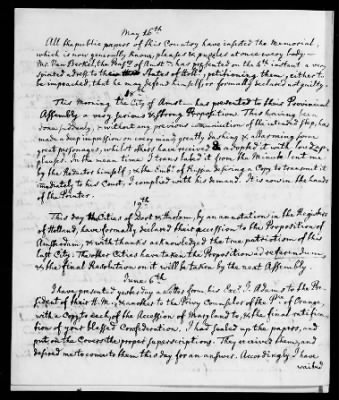 May 16th
All the publick papers of this Country have inserted the Memorial,
which is now generally known, pleases & puzzles at once every body —
Mr. Van Berkel, the Pens.y of Amst. has presented on the 4th instant a very
spirited address to the States of Holl.d, petitioning them, either to
be impeached, that he may defend himself, or formally declared not guilty.
This morning the City of Amst. has presented to this Provincial
Assembly a very serious & strong Proposition. This having been
done suddenly, & without any previous communication of the intended step, has
made a deep impression on every one, greatly darking & allarming some
great personages, whilst others have received & adopted it with loud ap-
plauses. In the mean time I translated it from the Minute lent me
by the Raadator himself; & the Emb.r of Russia desiring a Copy to transmit it
immediately to his Court, I complied with his demand. It is now in the hands
of the Printer.
19th
This day the Cities of Dort & Harlem, by an annotation in the Registers
of Holland, have formally declared their accession to the Proposition of
Amsterdam, & with thanks acknowledged the true patriotism of this
last City. The other Cities have taken the Proposition ad referendum,
& the final Resolution on it will be taken by the next Assembly
June 6th
I have presented yesterday a Letter from his Exc.y J. Adams to the Pre-
sident of their H. M.; & another to the Privy Counsellor of the Pr. of Orange,
with a Copy to each, of the Accession of Maryland to, & the final ratifica-
tion of your blessed Confederation. I had sealed up the papers, and
put on the Covers the proper superscriptions. They received them, and
desired me to come to them this day for an answer. Accordingly I have
waited